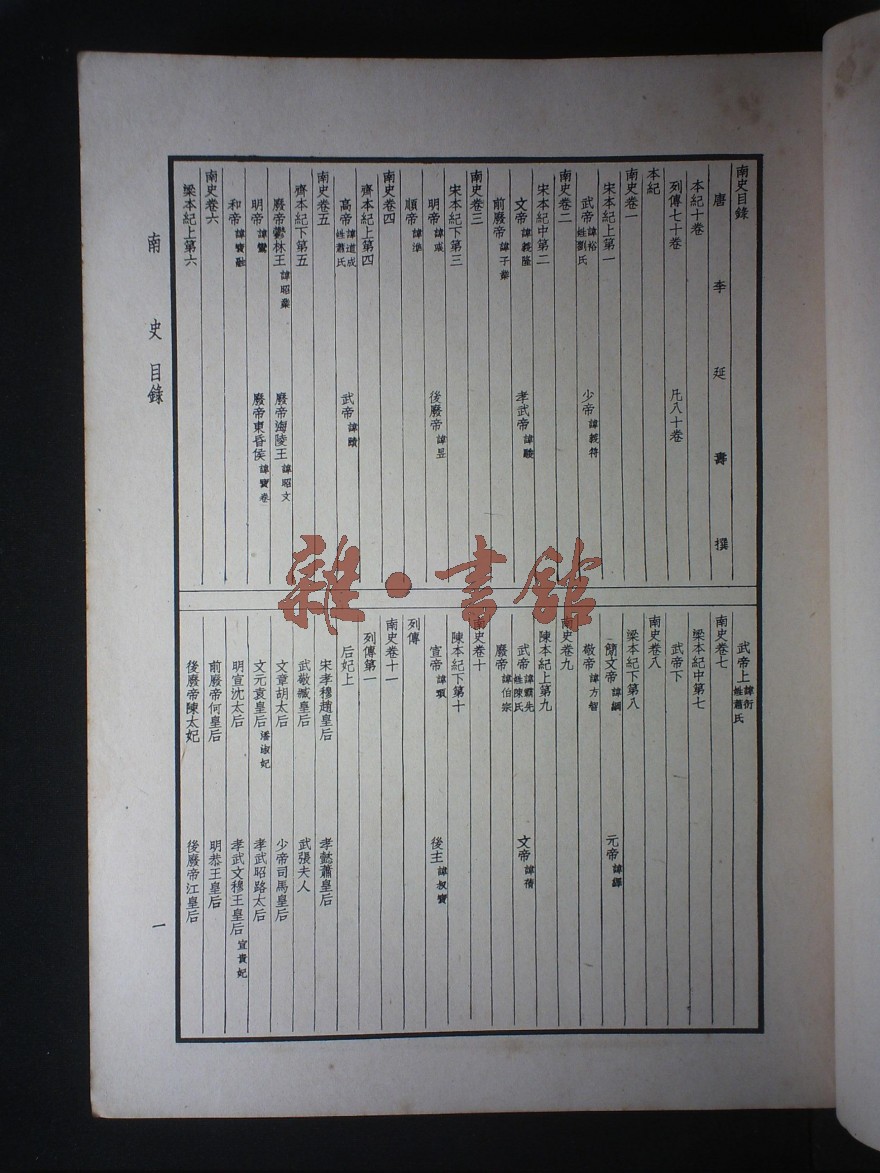 南史目錄
唐 李 延 壽 撰
本紀十卷
列傳七十卷 凡八十卷
本紀
南史卷一
宋本紀上第一
武帝 諱裕 姓劉氏 少帝 諱義符
南史卷二
宋本紀中第二
文帝 諱義隆 孝武帝 諱駿
前廢帝 諱子業
南史卷三
宋本紀下第三
明帝 諱彧 後廢帝 諱昱
順帝 諱準
南史卷四
齊本紀上第四
高帝 諱道成 姓蕭氏 武帝 諱賾
南史卷五
齊本紀下第五
廢帝鬱林王 諱昭業 廢帝海陵王 諱昭文
明帝 諱鸞 廢帝東昏侯 諱寶卷
和帝 諱寶融
南史卷六
梁本紀上第六
武帝上 諱衍 姓蕭氏
南史卷七
梁本紀中第七
武帝下
南史卷八
梁本紀下第八
簡文帝 諱綱 元帝 諱繹
敬帝 諱方智
南史卷九
陳本紀上第九
武帝 諱霸先 姓陳氏 文帝 諱蒨
廢帝 諱伯宗
南史卷十
陳本紀下第十
宣帝 諱頊 後主 諱叔寶
列傳
南史卷十一
列傳第一
后妃上
宋孝穆趙皇后 孝懿蕭皇后
武敬臧皇后 武張夫人
文章胡太后 少帝司馬皇后
文元袁皇后 潘淑妃 孝武昭路太后
明宣沈太后 孝武文穆王皇后 宣貴妃
前廢帝何皇后 明恭王皇后
後廢帝陳太妃 後廢帝江皇后
南 史 目錄
一
雜·書館